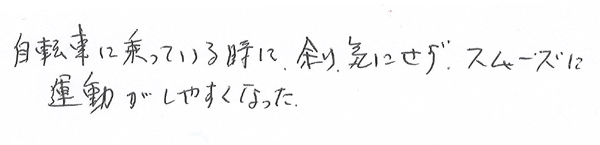 自転車に乗っている時に、余り、気にせず、スムーズに
運動がしやすくなった。